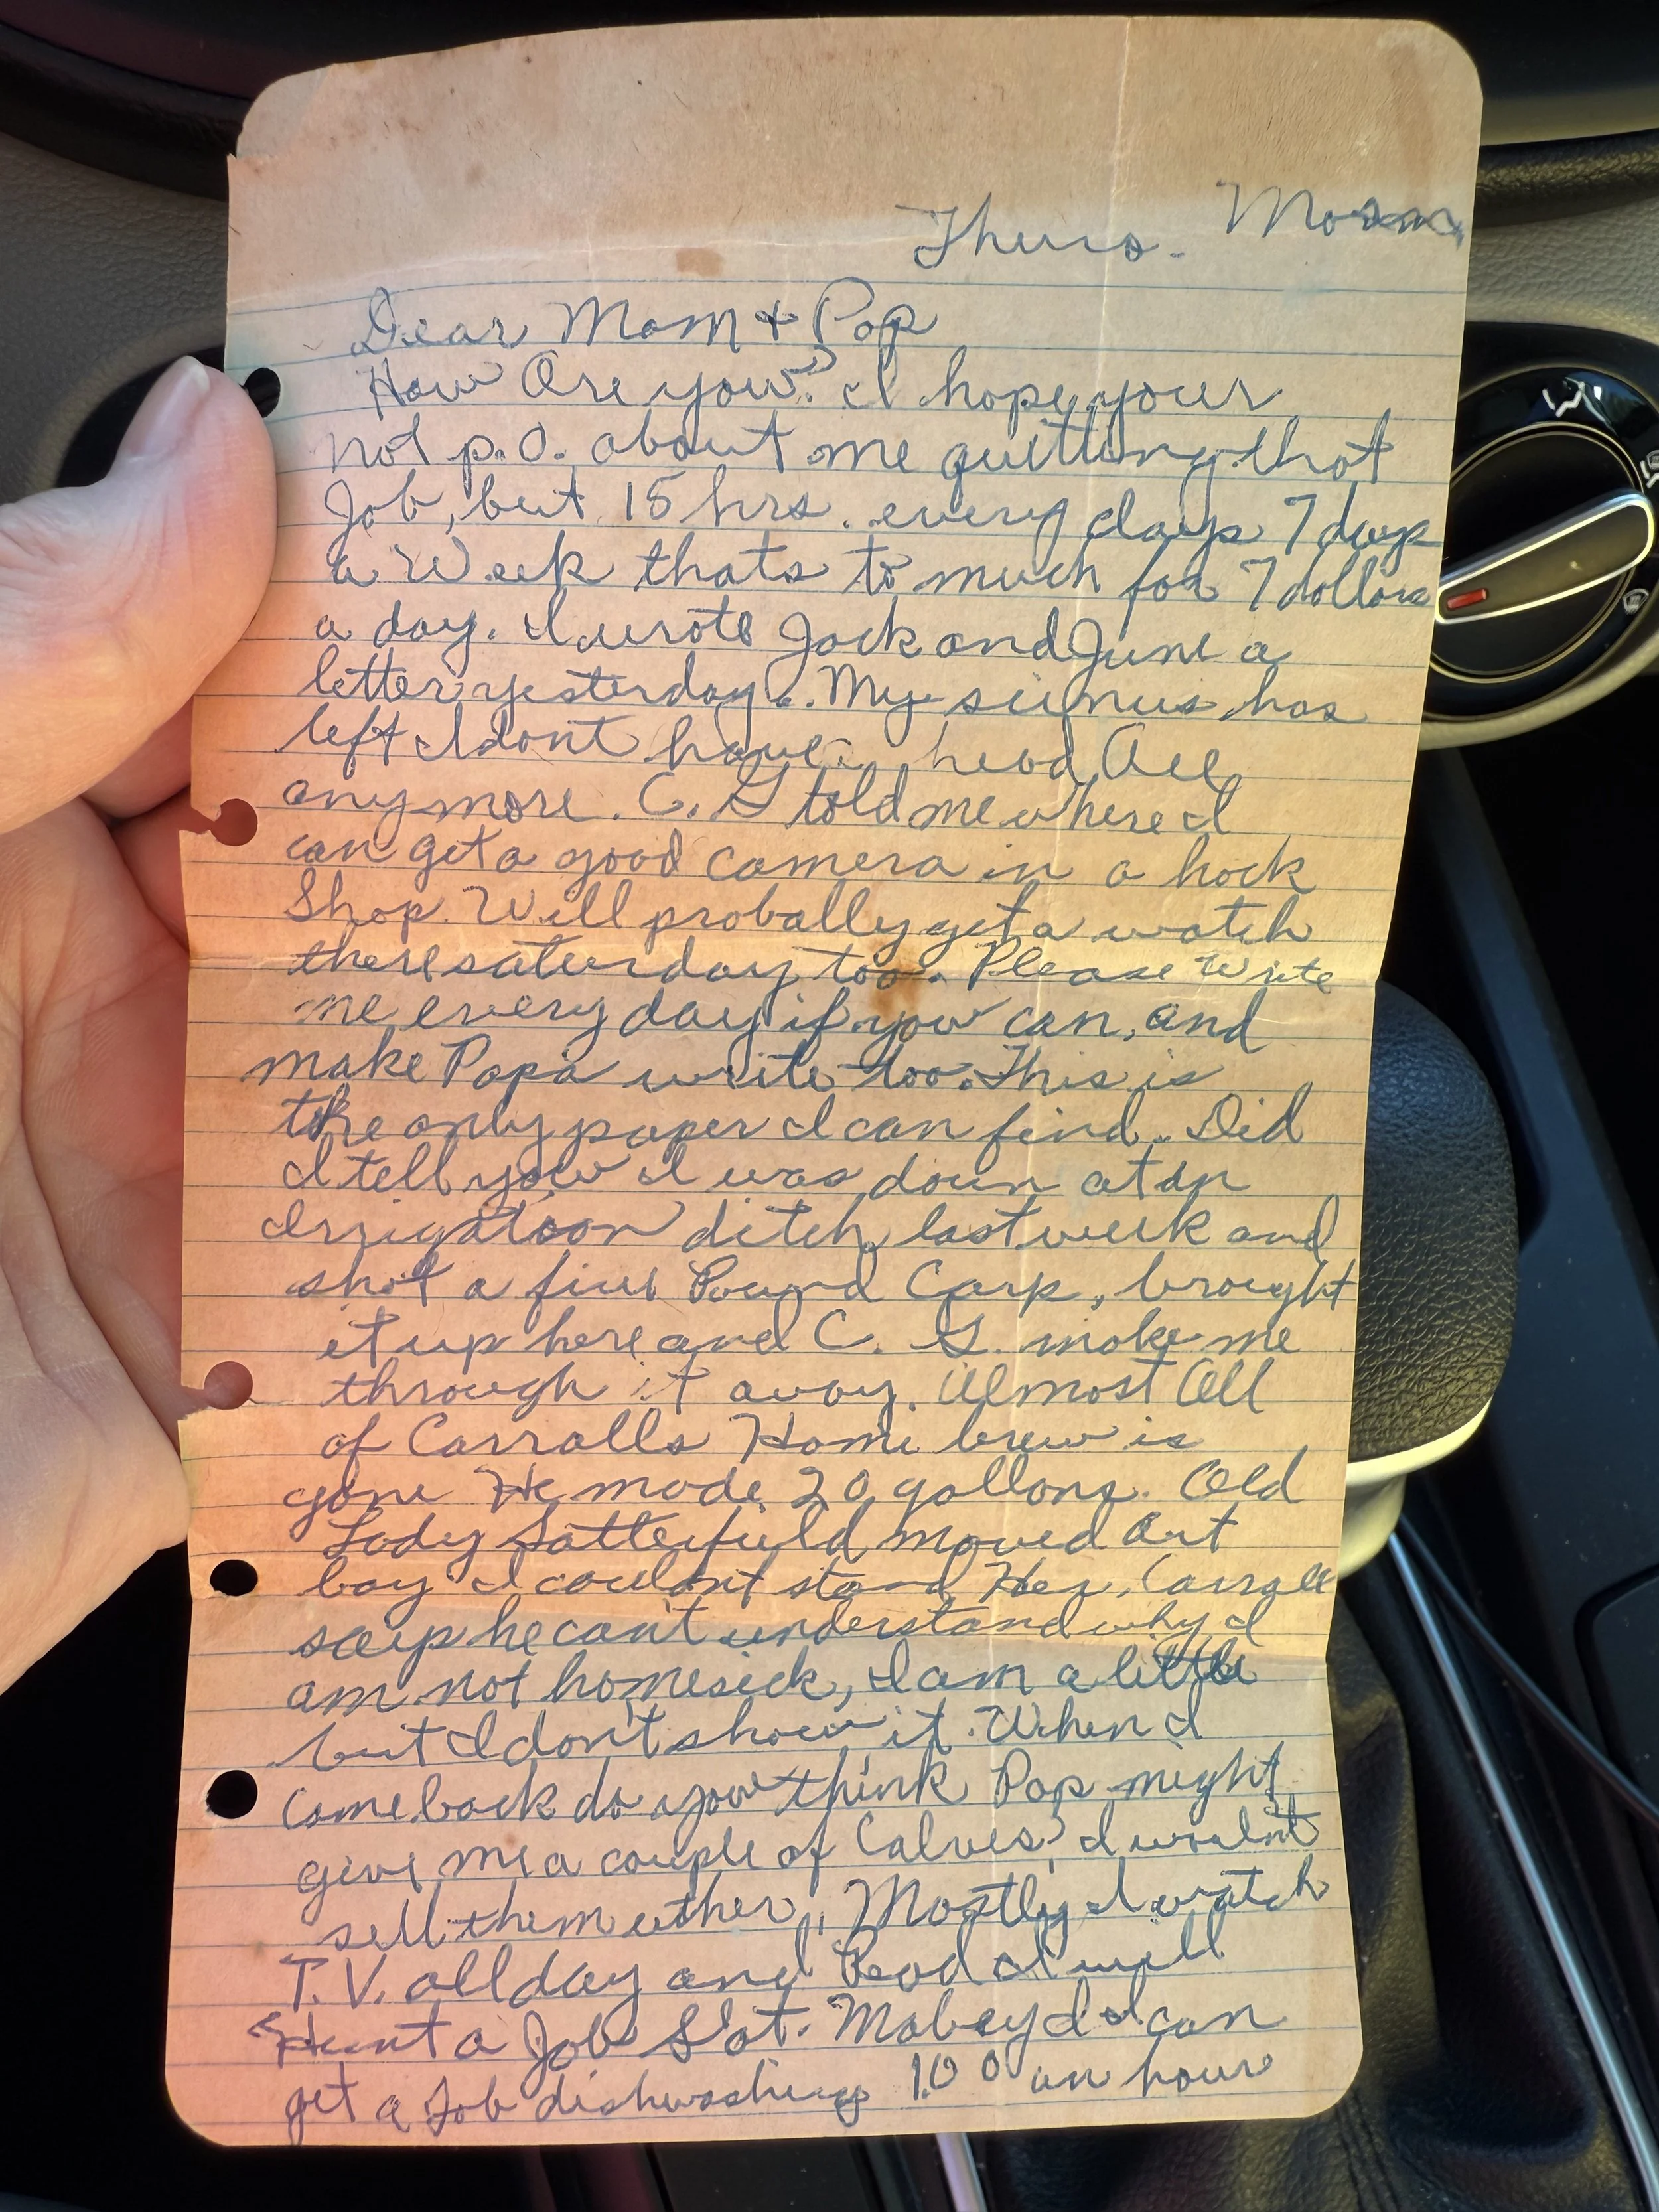 Thurs. Morn.
Dear Mom + Pop
How Are you? I hope your
not p.o. about me quitting that
Job, but 15 hrs. every days 7 days
a Week thats to much for 7 dollars
a day. I wrote Jack and June a
letter yesterday. My seinus has
left I dont have head Ace
anymore. C. G told me where I
can get a good camera in a hock
Shop. Will probally get a watch
there saturday too. Please Write
me every day if you can, and
make Papa write too. This is
the only paper I can find. Did
I tell you I was down at an
Irrigatoon ditch last week and
shot a five Pound Carp, brought
it up here and C. G. make me
through it away. Almost All
of Carralls Home brew is
gone He made 20 gallons. Old
Lady Satterfield moved Out
boy I couldnt stand Her, Carrall
says he can't understand why I
am not homesick, I am a little
but I don't show it. When I
come back do you think Pop might
give me a couple of Calves? I woulnt
sell them ether, Mostly I watch
T.V. all day and Read I will
Hunt a Job Sat. Mabey I can
get a Job dishwashing 1.00 an hour